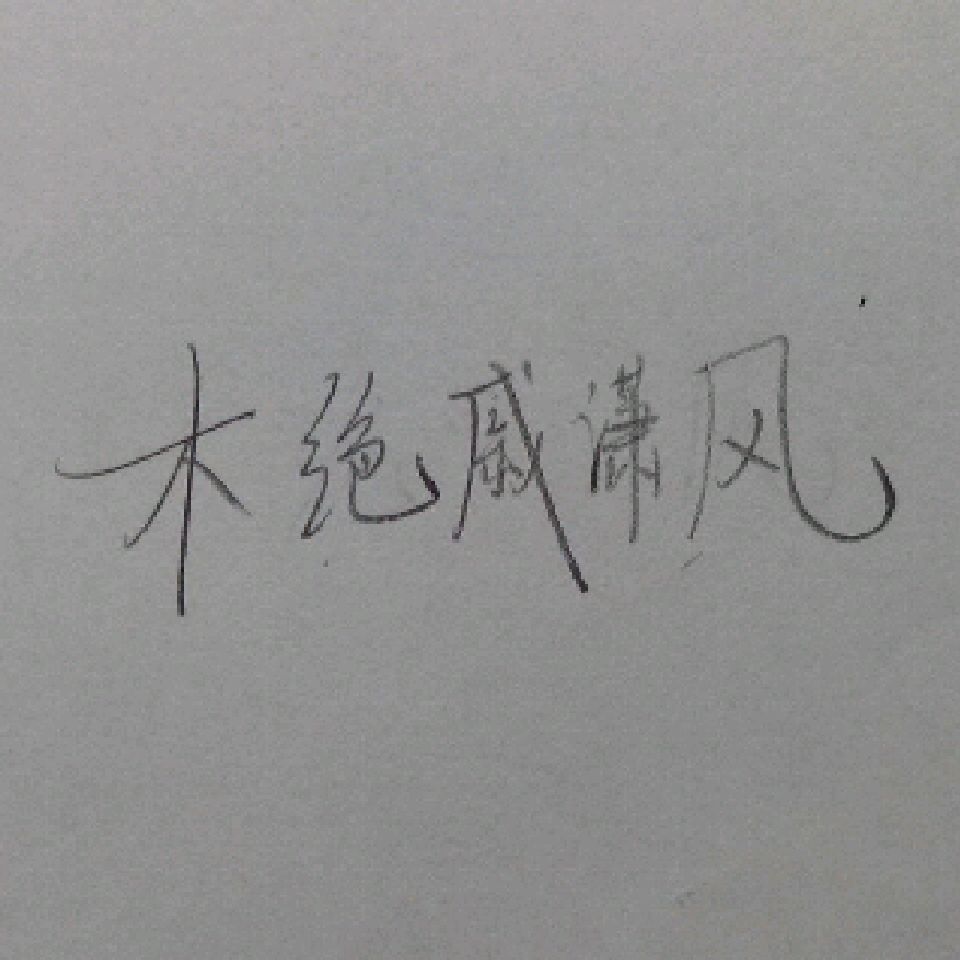 木绝戚潇风